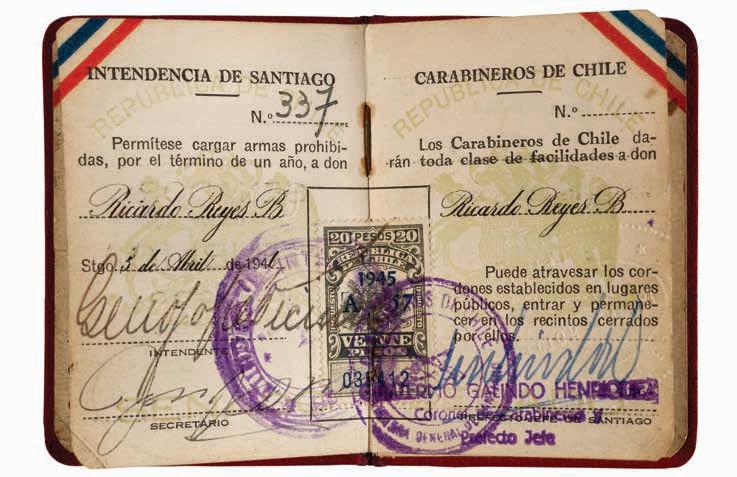 INTENDENCIA DE SANTIAGO
REPUBLICA DE CHILE
N.º 337
Permítese cargar armas prohibi-
das, por el término de un año, a don
Ricardo Reyes B
Stgo. 5 de Abril de 194
INTENDENTE
SECRETARIO
CARABINEROS DE CHILE
REPUBLICA DE CHILE
N.º
Los Carabineros de Chile da-
rán toda clase de facilidades a don
Ricardo Reyes B
Puede atravesar los cor-
dones establecidos en lugares
públicos, entrar y permane-
cer en los recintos cerrados
por ellos.
GALINDO HENRIQUEZ
Coronel de Carabineros y
PREFECTO JEFE DE SANTIAGO
Prefecto Jefe
20 PESOS 20
REPUBLICA
DE CHILE
1945
VEINTE
PESOS